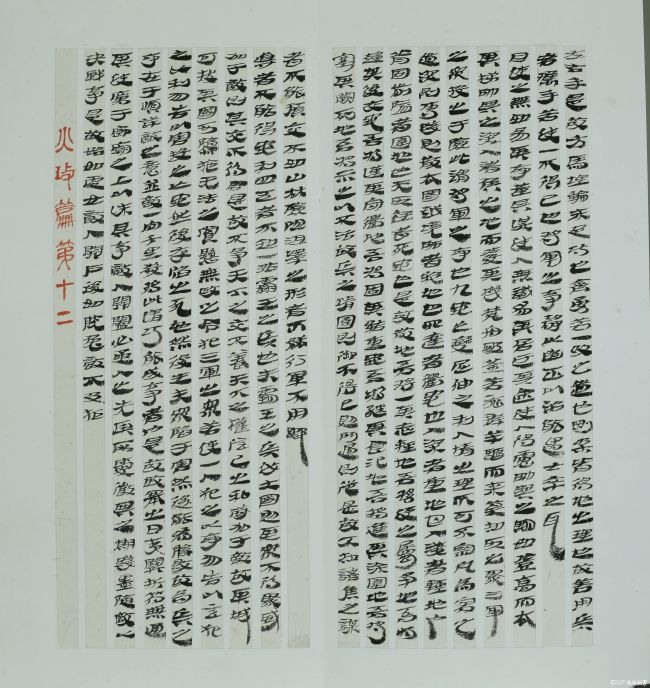 左右手是故方馬埋輪未足恃也齊勇若一政之道也剛柔皆得地之理也故善用兵
者攜手若使一人不得已也將軍之事靜以幽正以治能愚士卒之耳
目使之無知易其事革其謀使人無識易其居迂其途使人不得慮帥與之期如登高而去
其梯帥與之深入諸侯之地而發其機焚舟破釜若驅群羊驅而來莫知所之聚三軍
之眾投之于險此謂將軍之事也九地之變屈伸之利人情之理不可不察凡為客之
道深則專淺則散去國越境而師者絕地也四達者衢地也入深者重地也入淺者輕地也
背固前隘者圍地也無所往者死地也是故散地吾將一其志輕地吾將使之屬爭地吾將
趨其後交地吾將謹其守衢地吾將固其結重地吾將繼其食圮地吾將進其塗圍地吾將
塞其闕死地吾將示之以不活故兵之情圍則禦不得已則鬥過則從是故不知諸侯之謀
者不能預交不知山林險阻沮澤之形者不能行軍不用鄉
導者不能得地利四五者不知一非霸王之兵也夫霸王之兵伐大國則其眾不得聚威
加于敵則其交不得合是故不爭天下之交不養天下之權信己之私威加于敵故其城
可拔其國可隳施無法之賞懸無政之令犯三軍之眾若使一人犯之以事勿告以言犯
之以利勿告以害投之亡地然後存陷之死地然後生夫眾陷于害然後能為勝敗故為兵之
事在于順詳敵之意並敵一向千里殺將此謂巧能成事者也是故政舉之日夷關折符無通
其使厲于廊廟之上以誅其事敵人開闔必亟入之先其所愛微與之期踐墨隨敵以
決戰事是故始如處女敵人開戶後如脫兔敵不及拒
火攻篇第十二